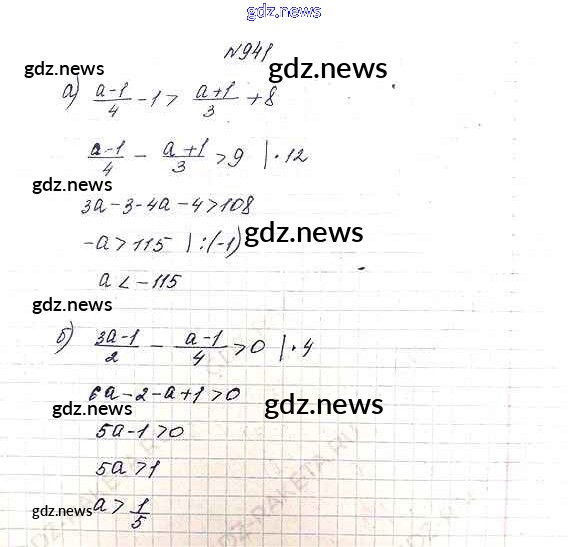 gdz.news
№941
gdz.news gdz.news
а) (a-1)/4 - 1 > (a+1)/3 + 8
(a-1)/4 - (a+1)/3 > 9 | · 12
gdz.news
3a-3-4a-4>108
-a > 115 | :(-1) gdz.news
a < -115
gdz.news
б) (3a-1)/2 - (a-1)/4 > 0 | · 4
6a-2-a+1>0
gdz.news gdz.news
5a-1>0
5a>1
gdz.news a > 1/5
GDZ-RAKETA.RU